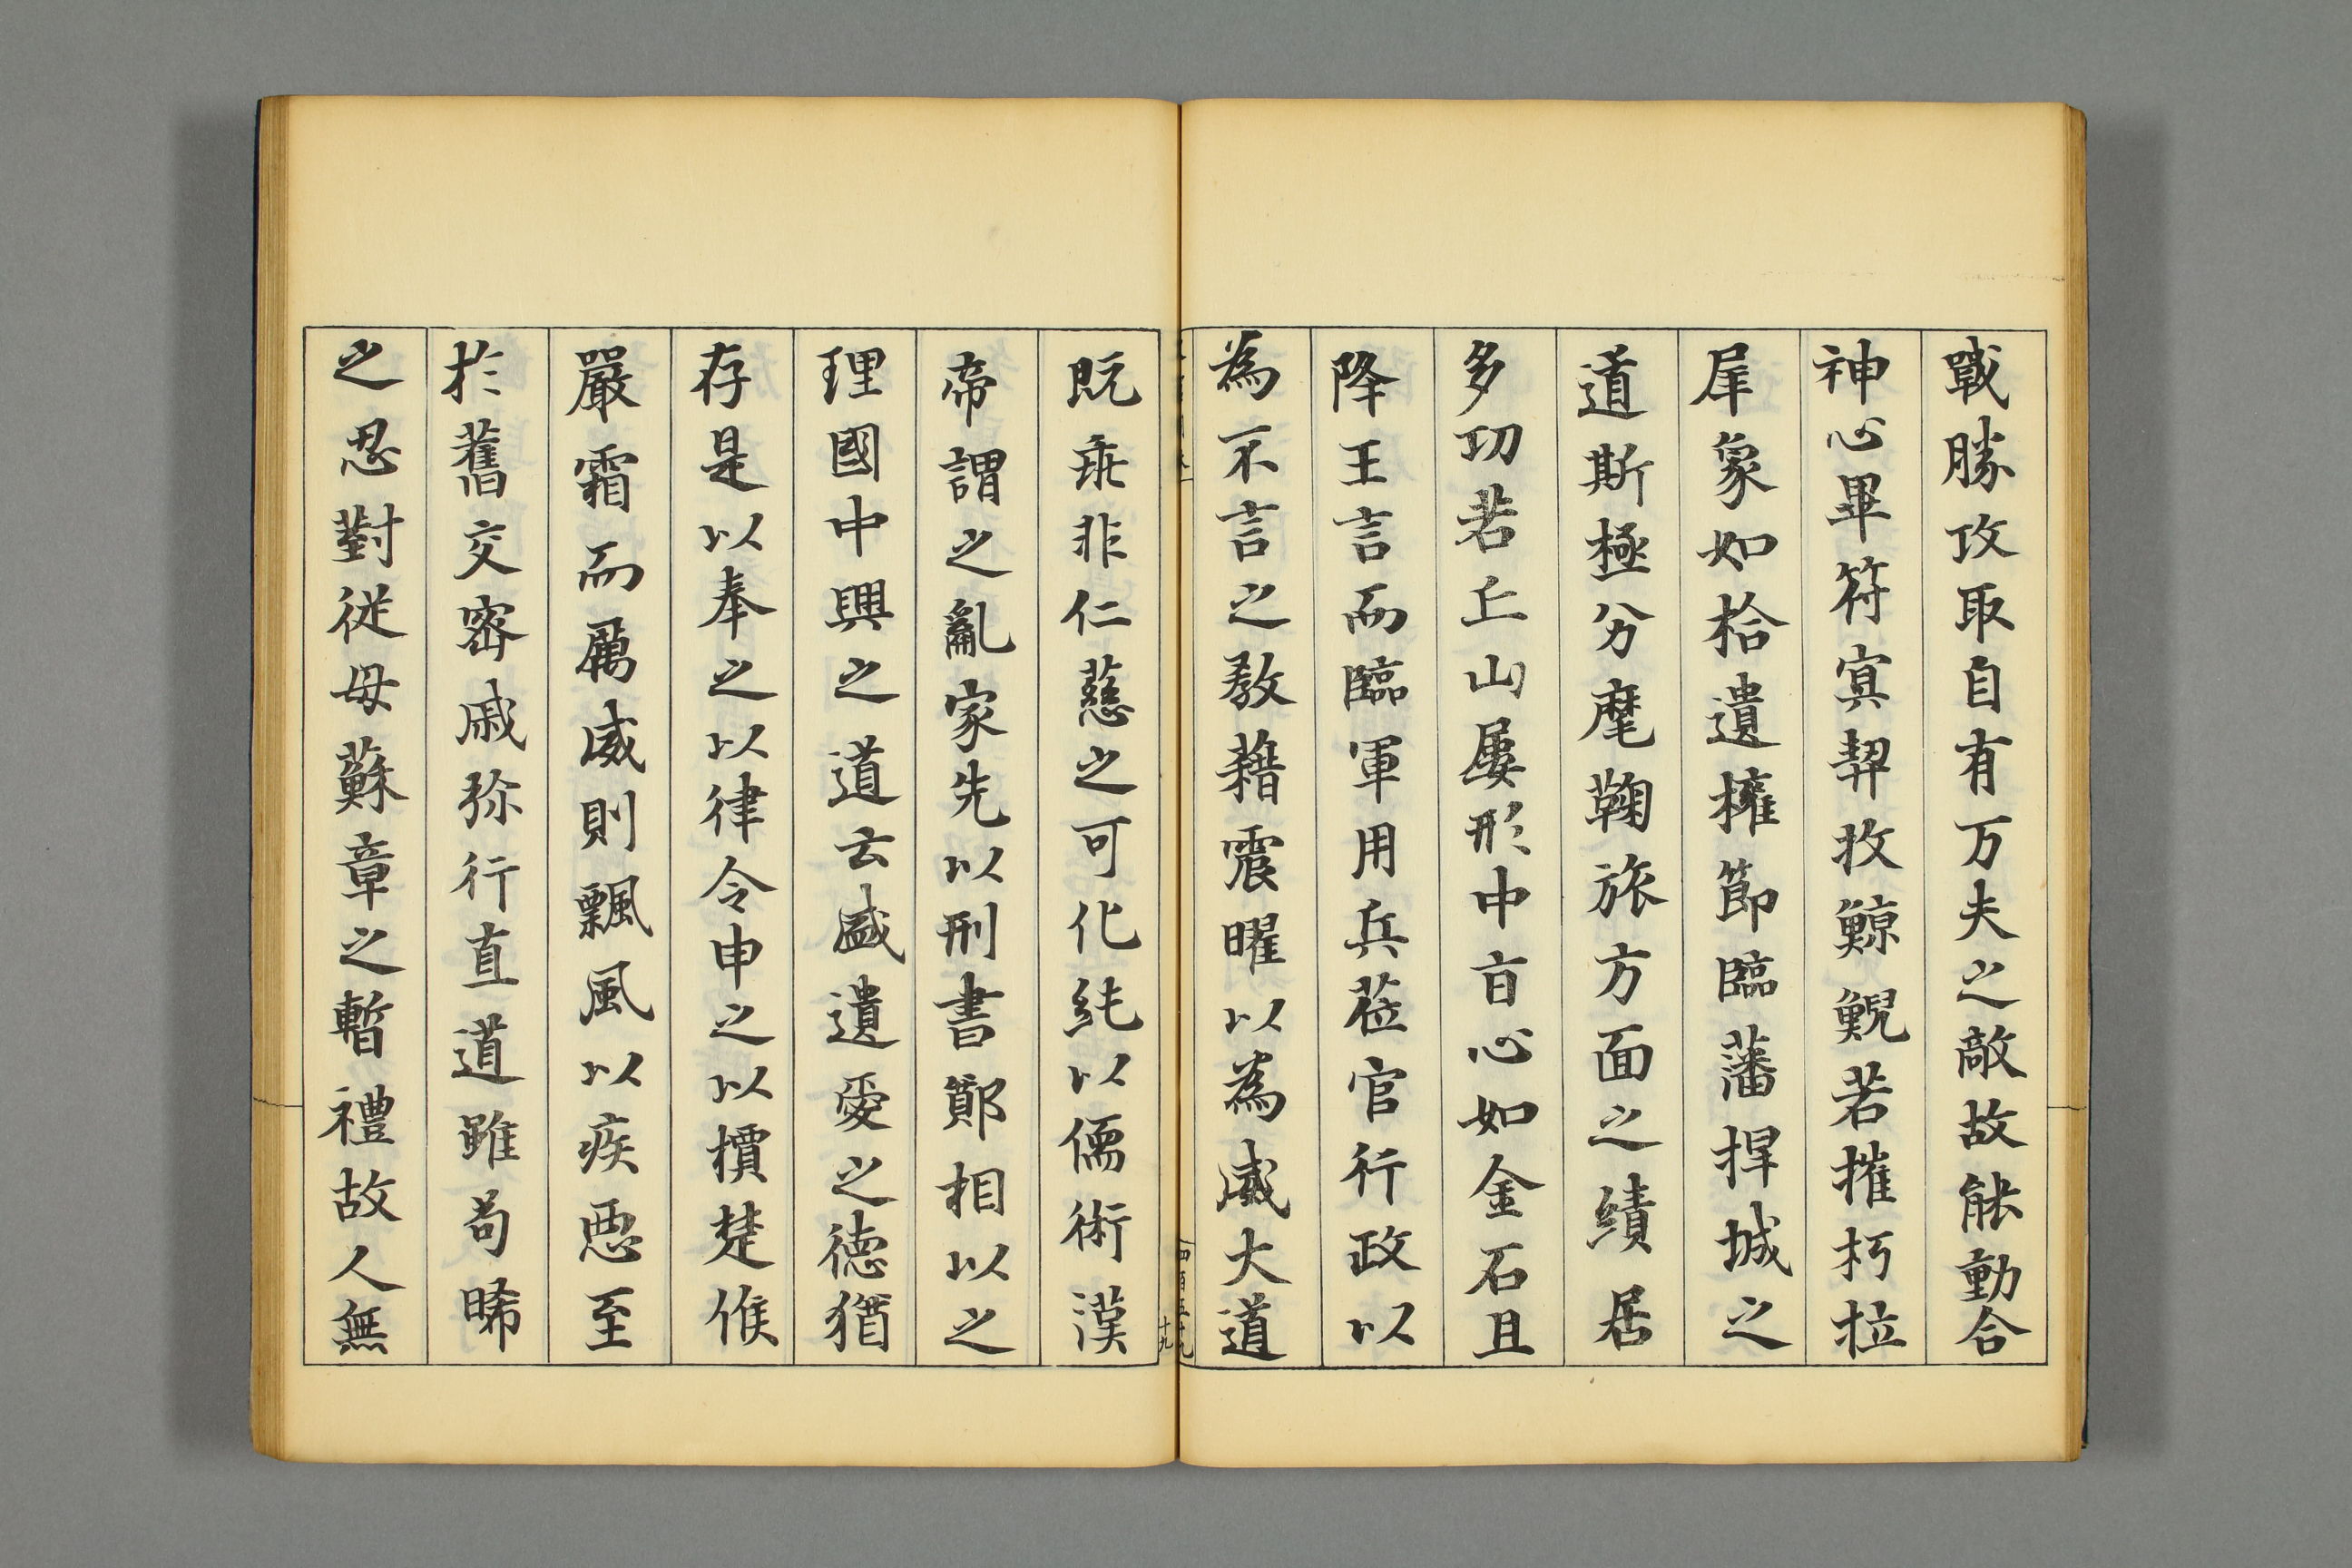 戰勝攻取自有万夫之敵故能動合
神心畢符冥契牧鯨鯢若摧朽拉
犀象如拾遺擁節臨藩捍城之
道斯極分麾鞠旅方面之績居
多功若丘山屢形中旨心如金石且
降王言而臨軍用兵莅官行政以
為不言之教藉震曜以為威大道
既乖非仁慈之可化純以儒術漢
帝謂之亂家先以刑書鄭相以之
理國中興之道云盛遺愛之德猶
存是以奉之以律令申之以檟楚候
嚴霜而厲威則飄風以疾惡至
於舊交密戚弥行直道雖苟晞
之忍對從母蘇章之暫禮故人無
十九